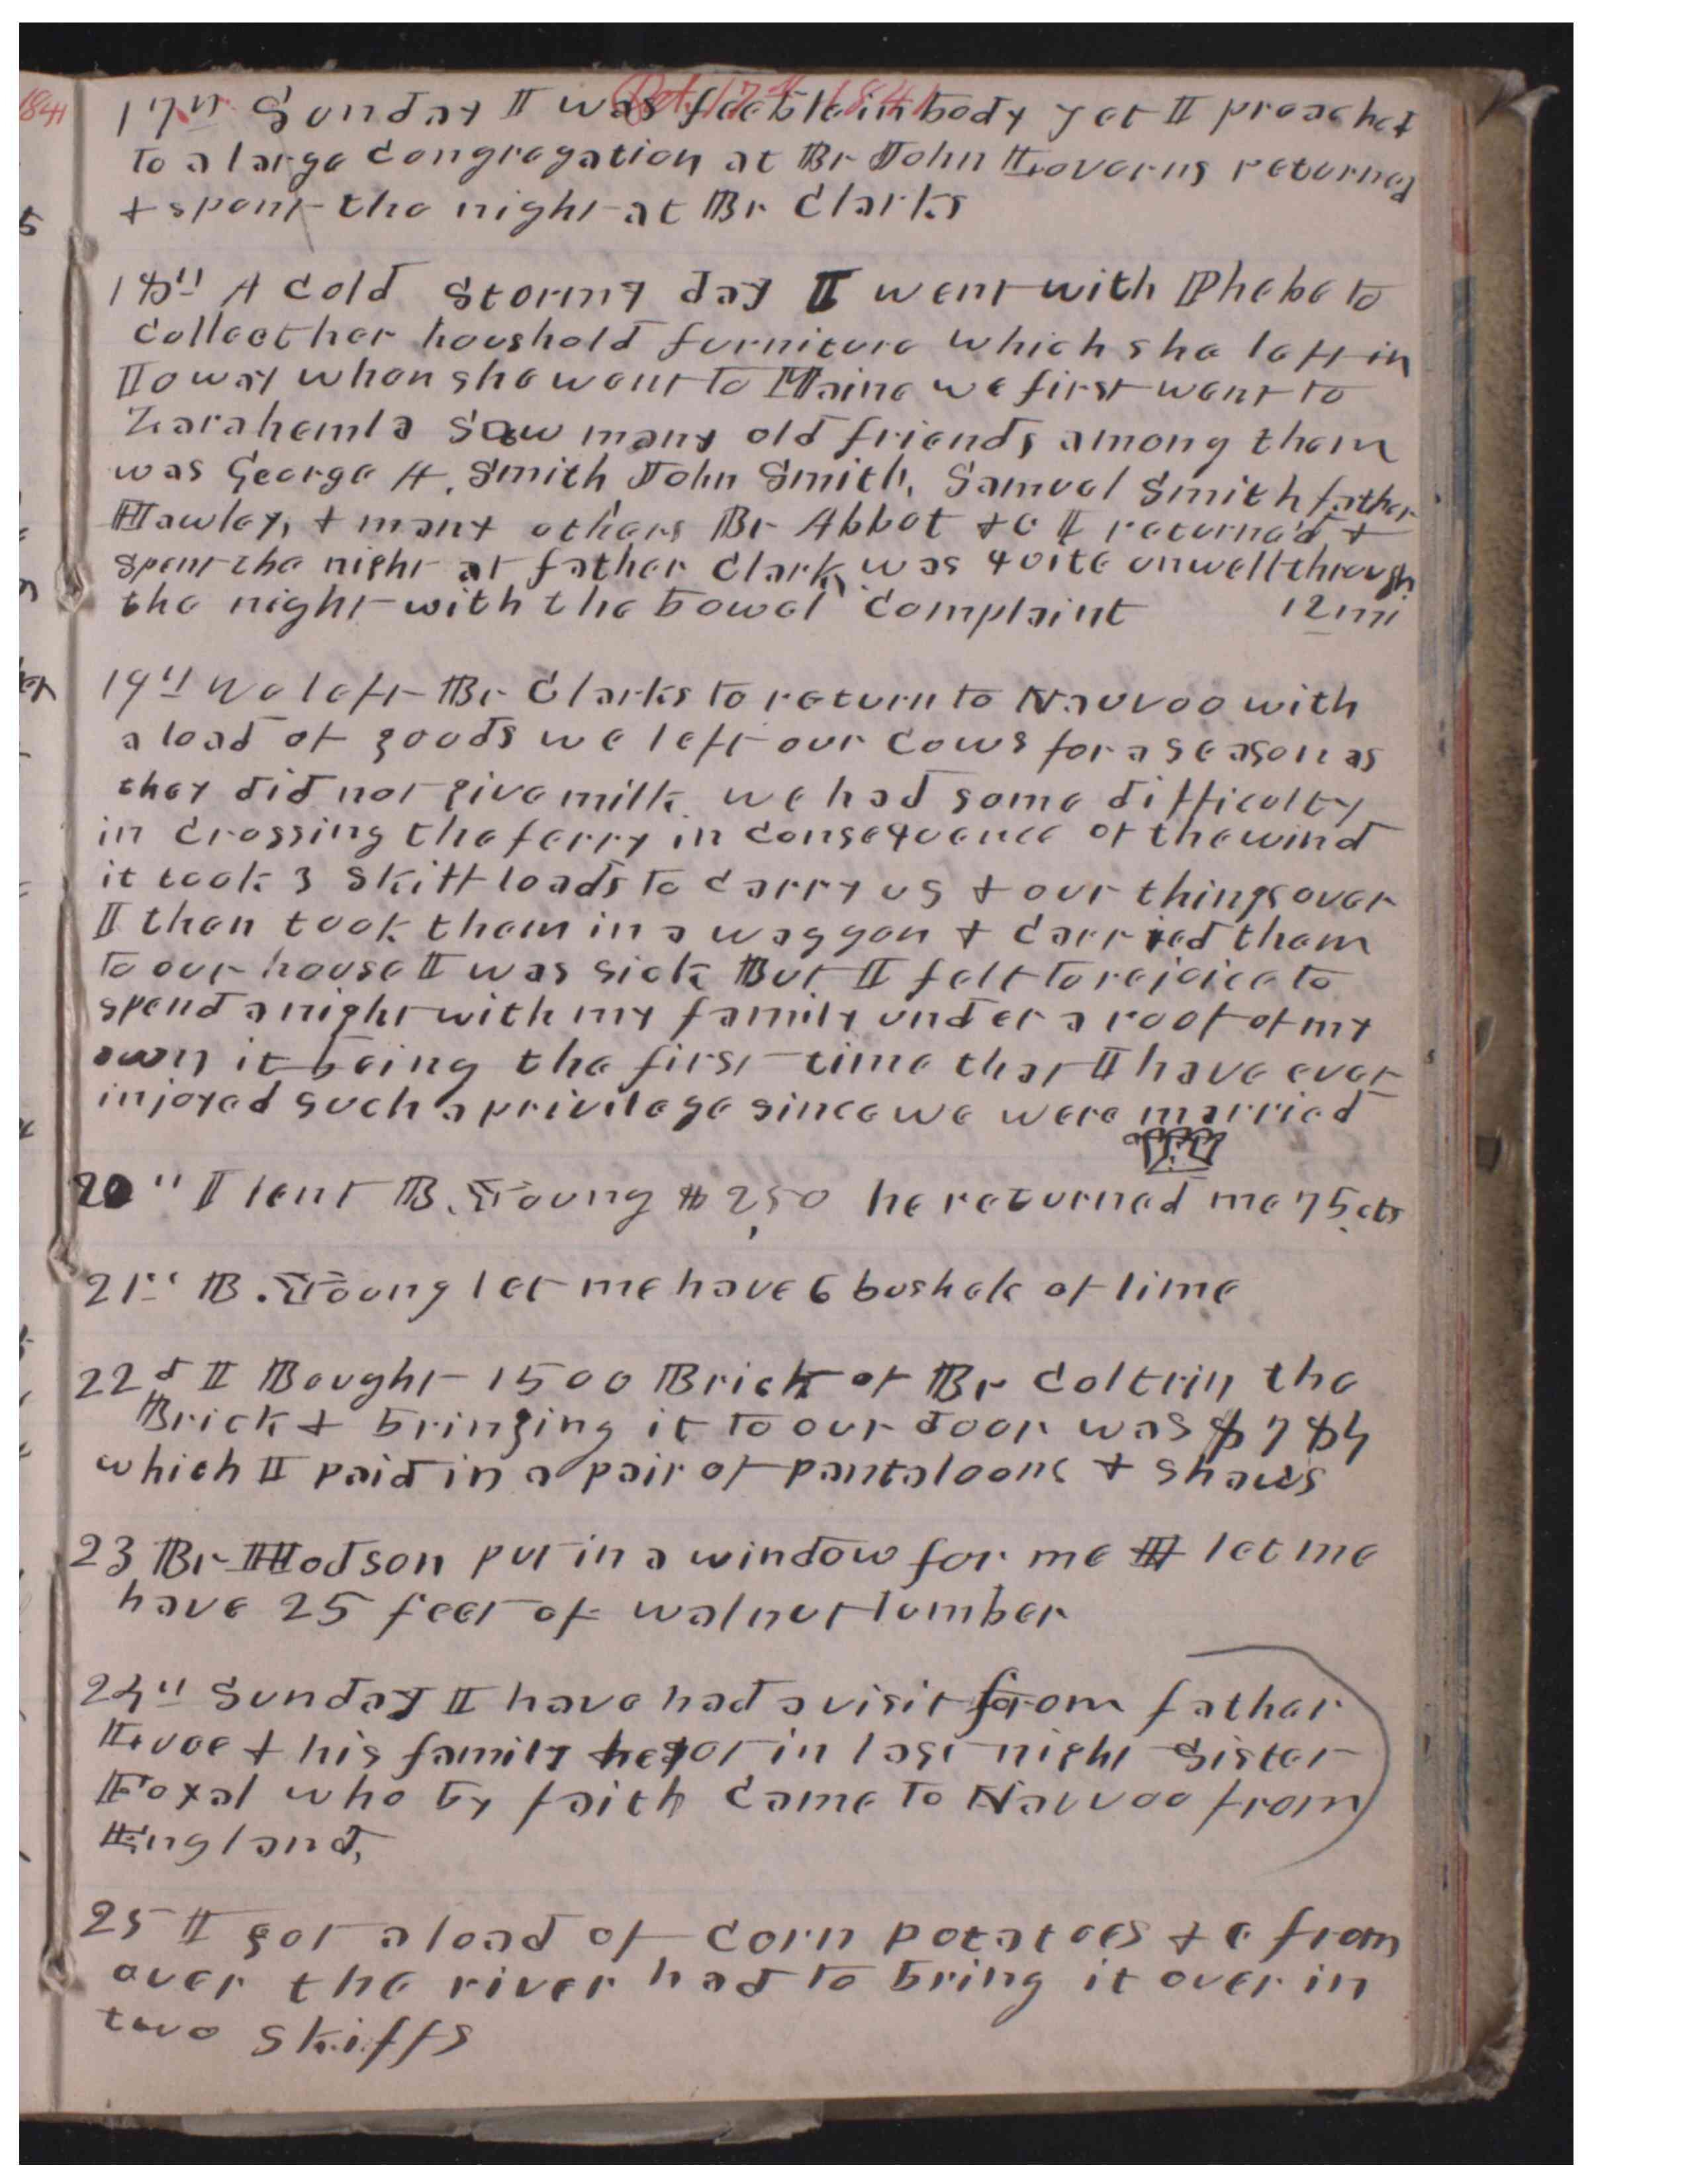 1841
Oct. 17th 1841
17th Sunday I was feeble in body yet I preached
to a large congregation at Br John Groverns returned
& spent the night at Br Clarks
18th A cold stormy day I went with Phebe to
collect her houshold furniture which she left in
Ioway when she went to Maine we first went to
Zarahemla Saw many old friends among them
was George A. Smith John Smith, Samuel Smith father
Hawley, & many others Br Abbot &c I returned &
spent the night at father Clark was quite unwell through
the night with the bowel complaint 12 mi
19th We left Br Clarks to return to Nauvoo with
a load of goods we left our cows for a season as
they did not give milk we had some difficulty
in crossing the ferry in consequence of the wind
it took 3 skiff loads to carry us & our things over
I then took them in a waggon & carried them
to our house I was sick But I felt to rejoice to
spend a night with my family under a roof of my
own it being the first time that I have ever
injoyed such a privilege since we were married
20th I lent B. Young $2,50 he returned me 75 cts
21st B. Young let me have 6 bushels of lime
22d I Bought 1500 Brick of Br Coltrin the
Brick & bringing it to our door was $7 84
which I paid in a pair of pantaloons & shaws
23 Br Hodson put in a window for me let me
have 25 feet of walnut lumber
24th Sunday I have had a visit from father
& his family he got in last night Sister
Foxal who by faith came to Nauvoo from
England,
25 I got a load of corn potatoes &c from
over the river had to bring it over in
two skiffs